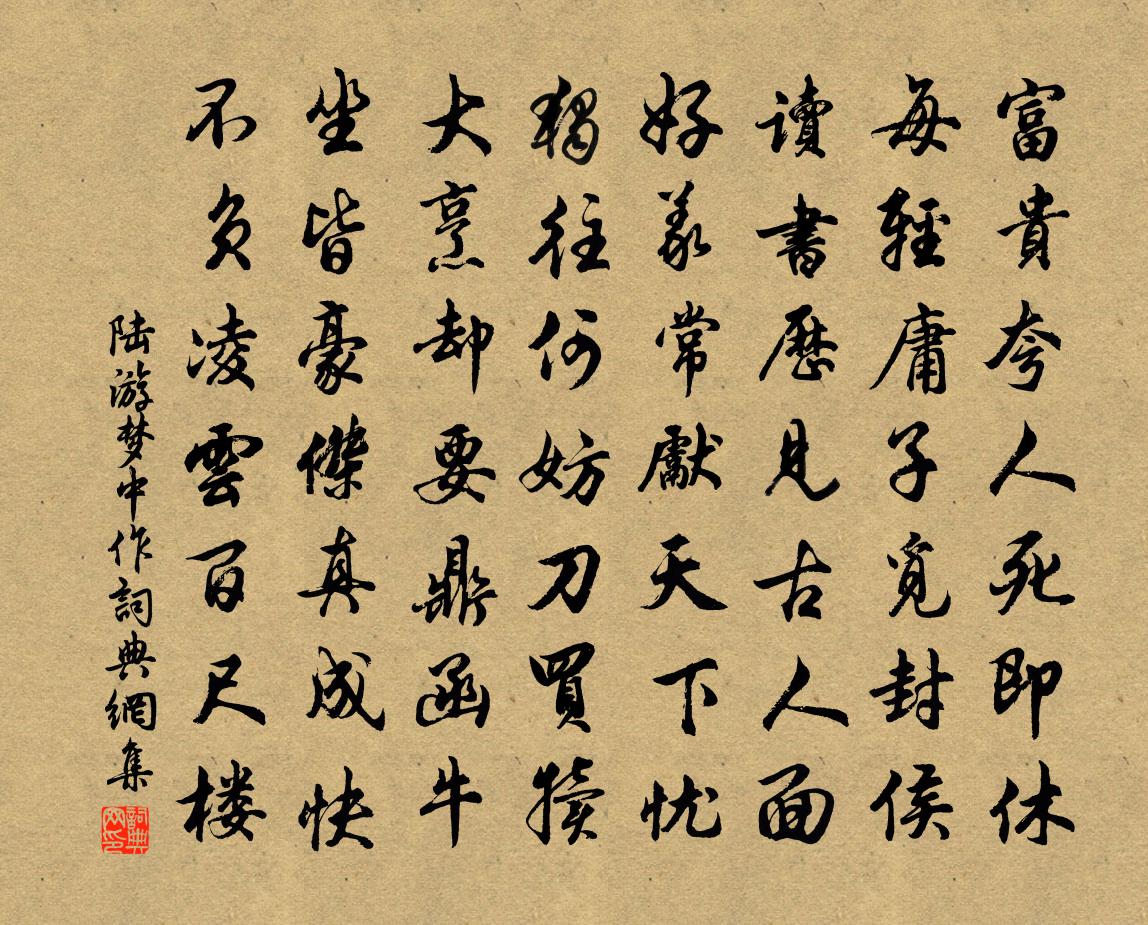 富貴夸人死即休
每輕庸子覓封侯
讀書歷見古人面
好義常獻天下忧
獨往何妨刀買犢
大烹却要鼎函牛
坐皆豪傑真成快
不負凌雲百尺楼
陆游梦中作詞典網集
詞典网印